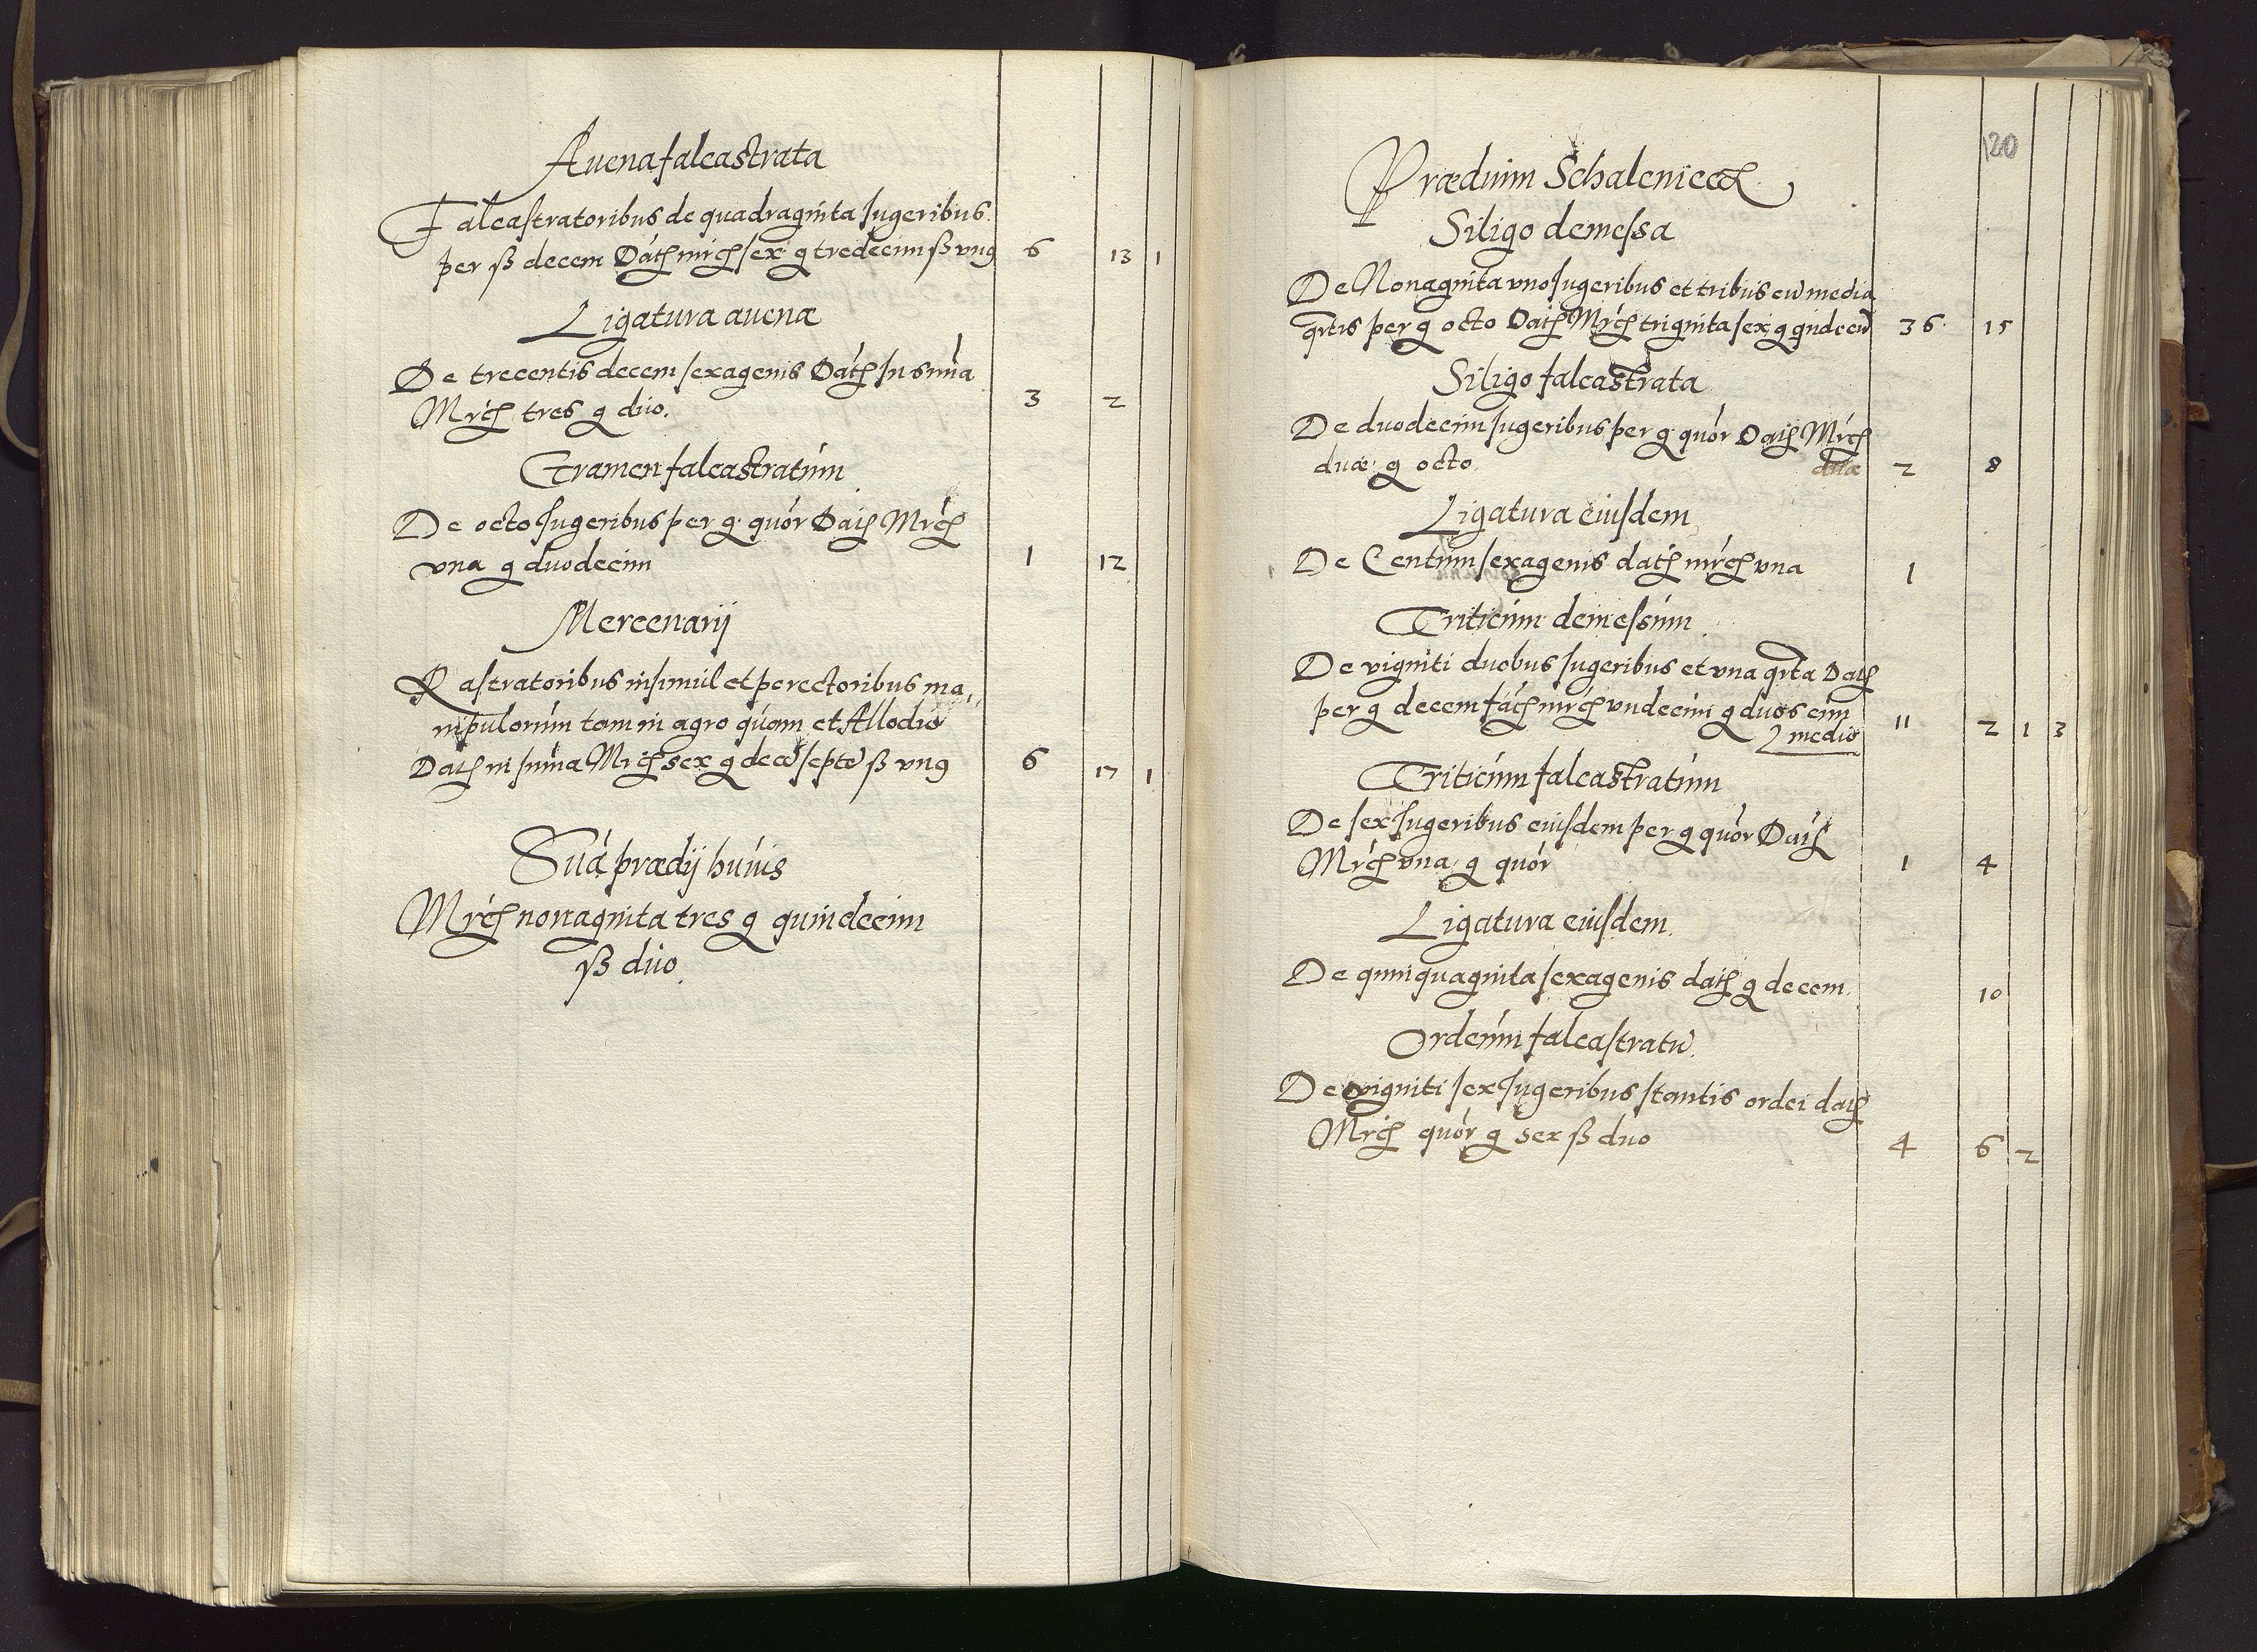 Auena falcastrata
Falcastratoribus de quadraginta Iugeribus
per ß decem Datę mrcę sex g tredecim ß vng 6 13 1
Ligatura auenæ
De trecentis decem sexagenis Datę In summa
Mrcę tres g duo. 3 2
Gramen falcastratum
De octo Iugeribus per g quor Datę Mrcę
vna g duodecim 1 12
Mercenarij
Rastratoribus insimul et porrectoribus ma,,
nipulorum tam in agro quam et Allodio
Datę in summa Mrcę sex g decē septē ß vng 6 17 1
Suā prædij huius
Mrcę nonaginta tres g quindecim
ß duo.
120
Prædium Schalenicæ
Siligo demessa
De Nonaginta vno Iugeribus et tribus cū media
qrtis per g octo Datę Mrcę triginta sex g qindecī 36 15
Siligo falcastrata
De duodecim Iugeribus per g quor Datę Mrcę
duæ g octo duæ 2 8
Ligatura eiusdem
De Centum sexagenis datę mrcę vna 1
Triticum demessum
De viginti duobus Iugeribus et vna qrta Datę
per g decem facę mrcę vndecim g duos cum 11 2 1 3
medio
Triticum falcastratum
De sex Iugeribus eiusdem per g quor Datę
Mrcę vna g quor 1 4
Ligatura eiusdem
De quinquaginta sexagenis datę g decem. 10
Ordeum falcastratū
De viginti sex Iugeribus stantis ordei datę
Mrcę quor g sex ß duo 4 6 2